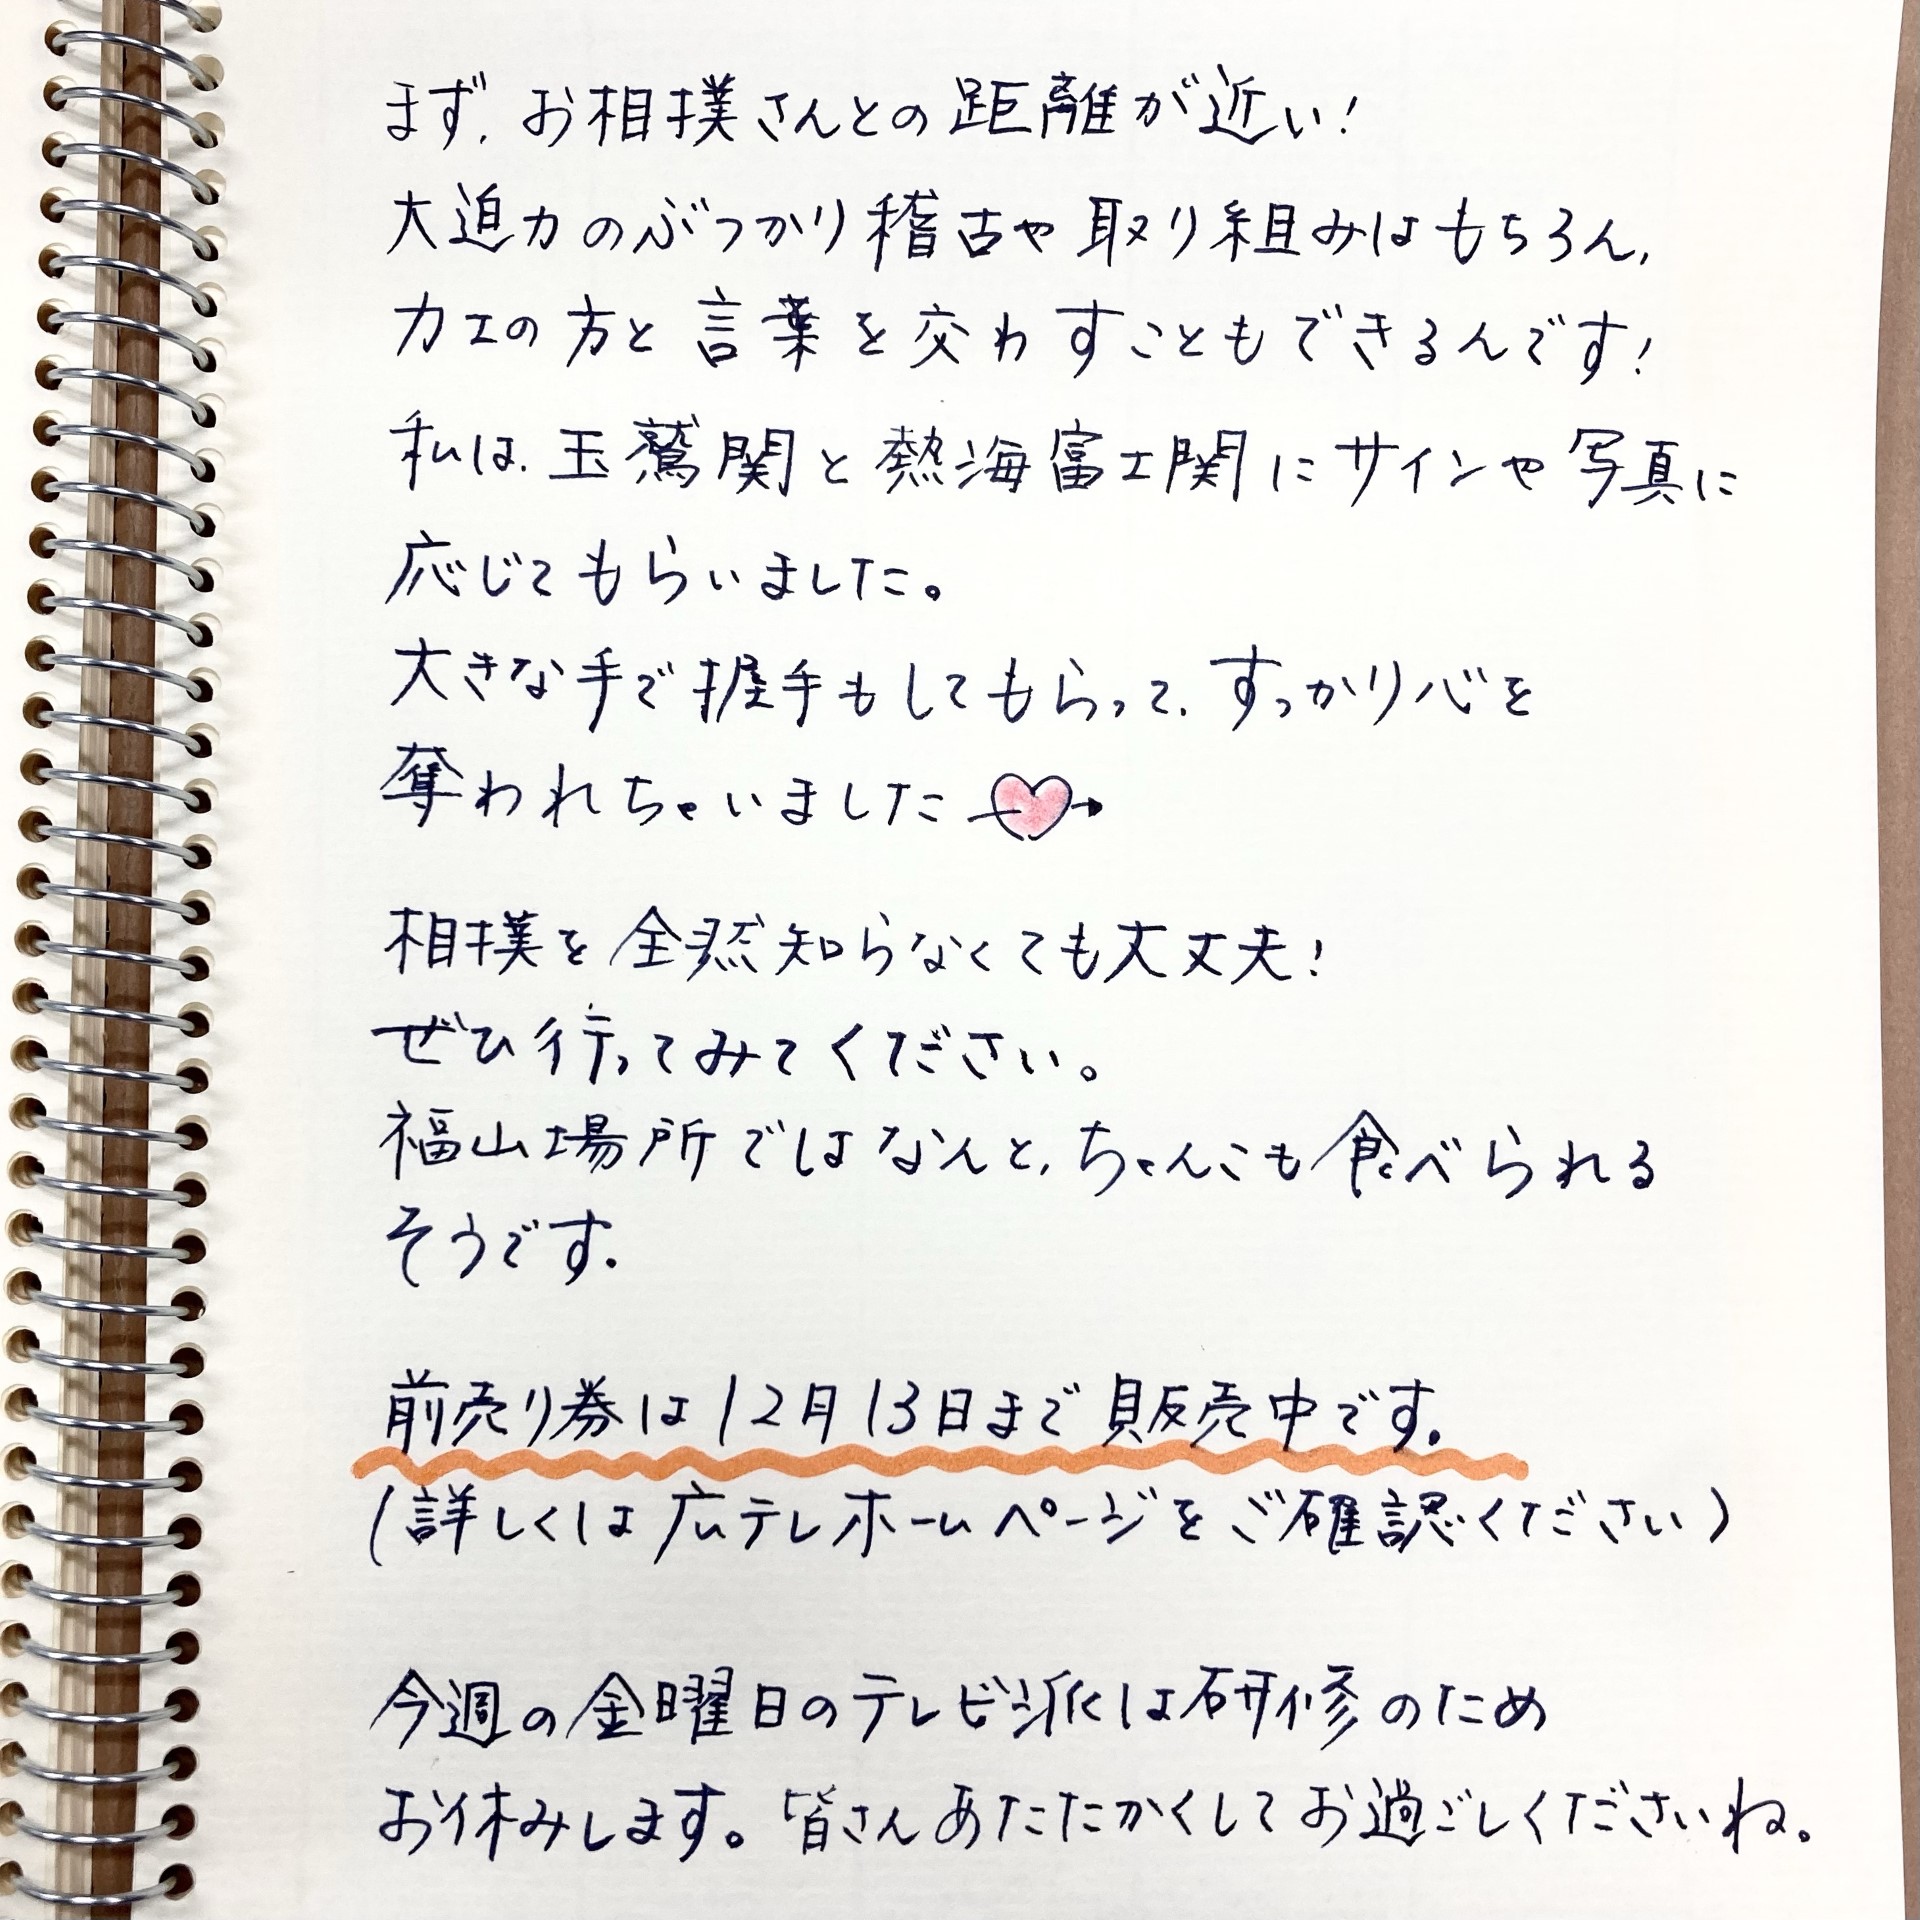 まず、お相撲さんとの距離が近い!
大迫力のぶつかり稽古や取り組みはもちろん、
力士の方と言葉を交わすこともできるんです!
私は、玉鷲関と熱海富士関にサインや写真に
応じてもらいました。
大きな手で握手もしてもらって、すっかり心を
奪われちゃいました
相撲を全然知らなくても大丈夫!
ぜひ行ってみてください。
福山場所ではなんと、ちゃんこも食べられる
そうです。
前売り券は12月13日まで販売中です。
(詳しくは広テレホームページをご確認ください)
今週の金曜日のテレビ派は研修のため
お休みします。皆さんあたたかくしてお過ごしくださいね。